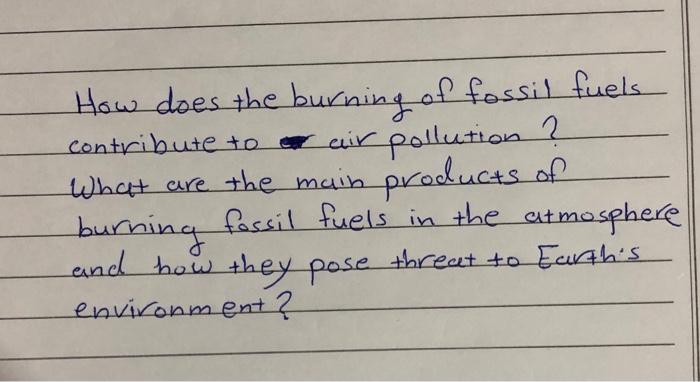 How does the burning of fossil fuels
contribute to air pollution ?
What are the main products of
burning fossil fuels in the atmosphere
and how they pose threat to Earth's
environment ?